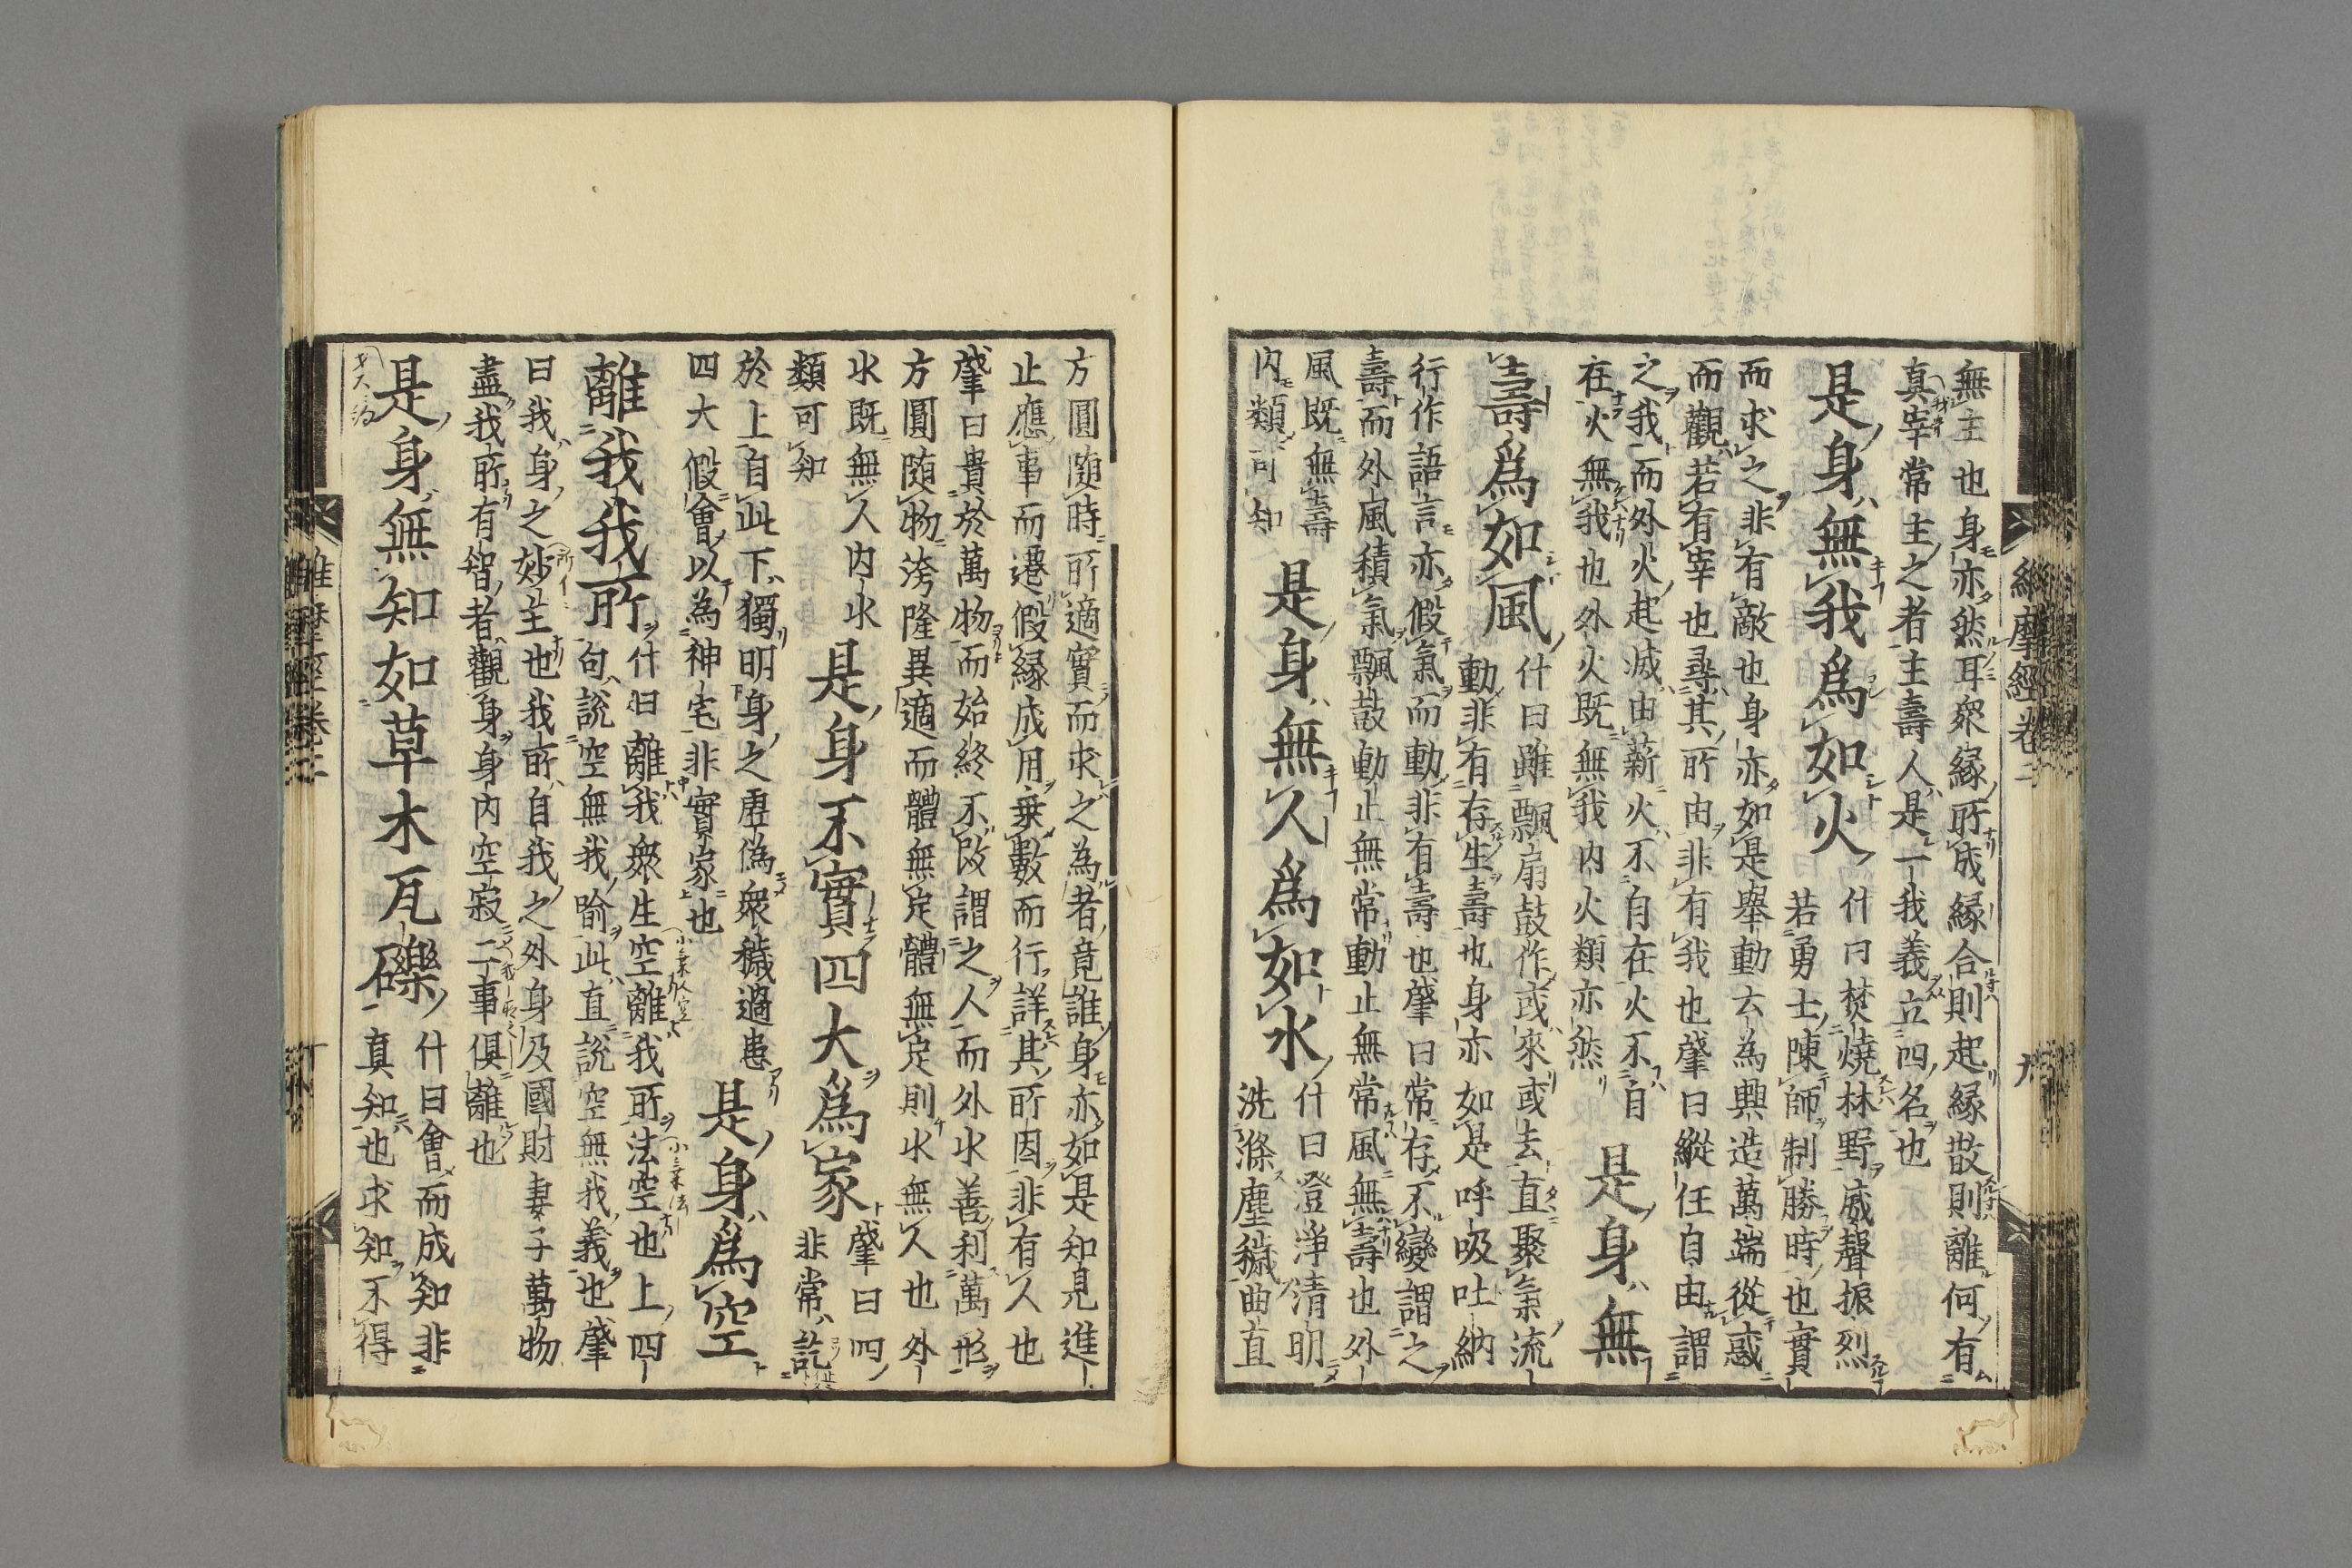 無主也身亦然耳衆緣所成緣合則起緣散則離何有
真宰常主之者主壽人是一我義立四名也
是身無我爲如火 什曰焚燒林野威聲振烈
若勇士陳師制勝時也實
而求之非有敵也身亦如是舉動云為興造萬端從惑
而觀若有宰也尋其所由非有我也肇曰縱任自由謂
之我而外火起滅由薪火不自在火不自
在火無我也外火既無我內火類亦然 是身無
壽爲如風 什曰雖飄扇鼓作或來或去直聚氣流
動非有存生壽也身亦如是呼吸吐納
行作語言亦假氣而動非有壽也肇曰常存不變謂之
壽而外風積氣飄鼓動止無常動止無常風無壽也外
風既無壽
內類可知 是身無人爲如水 什曰澄淨清明
洗滌塵穢曲直
方圓随時所適實而求之為者竟誰身亦如是知見進
止應事而遷假緣成用乗數而行詳其所因非有人也
肇曰貴於萬物而始終不改謂之人而外水善利萬形
方圓随物洿隆異適而體無定體無定則水無人也外
水既無人內水
類可知 是身不實四大爲家 肇曰四
非常訖
於上自此下獨明身之虛偽衆穢過患
四大假會以為神宅非實家也 是身爲空
離我我所 什曰離我衆生空離我所法空也上四
句說空無我喻此直說空無我義也肇
曰我身之妙主也我所自我之外身及國財妻子萬物
盡我所有智者觀身身內空寂二事俱離也
是身無知如草木瓦礫 什曰會而成知非
真知也求知不得
維摩經卷二